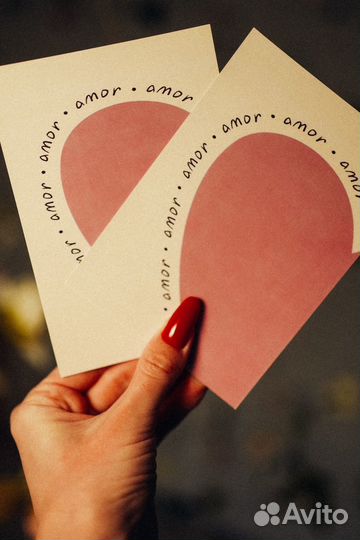 amor • amor • amor • amor • amor
amor • amor • amor • amor • amor • amor • amor
Avito